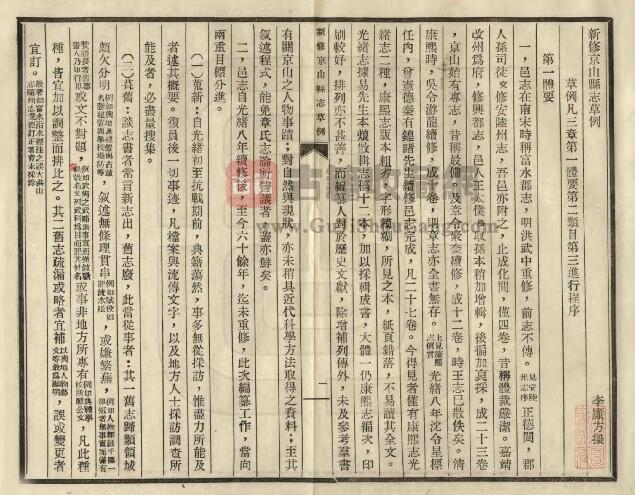 新修京山縣志草例
李廉方擬
草例凡三章第一體要第二類目第三進行程序
第一體要
一，邑志在南宋時稱富水郡志，明洪武中重修，前志不傳。見安陸州志序正德間，郡
人孫司徒交修安陸州志，吾邑亦附之，止成化間，僅四卷，昔稱體裁嚴潔。嘉靖
改州爲府，修興都志，邑人王太僕
取孫本稍加增輯，後徧加裒採，成二十三卷
，京山始有專志，昔稱最備。及章令聚奎續修，成十二卷，時王志已散佚矣。清
康熙時，吳令游龍續修，成
卷，明章志亦全書無存。上見康熙志例言光緒八年沈令星標
任內，曾憲德秦有鍠諸先生續修邑志完成，凡二十七卷。今得見者僅有康熙志光
緒志二種，康熙志版本粗劣，字形模糊，所見之本，紙頁錯落，不易讀其全文。
光緒志據易先生本烺散輯志稿十二本，加以採輯成書，大體一仍康熙志編次，印
刷較好，排列亦不甚善，而編纂人對於歷史文獻，除增補列傳外，未及參考羣書
新修京山縣志草例
一
有關京山之人物事蹟；對自然與現狀，亦未稍具近代科學方法取得之資料；至其
敘述程式，能免章氏志論所譏議者，蓋亦鮮矣。
二，邑志自光緒八年續修後，至今六十餘年，迄未重修，此次編纂工作，當向
兩重目標分進。
（一）葺新：自光緒初至抗戰期前，典籍蕩然，事多無從採訪，惟盡力所能及
者述其概要。復員後一切事迹，凡檔案與流傳文字，以及地方人士採訪調查所
能及者，必盡量搜集。
（二）葺舊：談志書者常言新志出，舊志廢，此當從事者：其一舊志歸類領域
頗欠分明，
敘述無條理貫串，
或嫌繁蕪，
或文不對題，
或事非地方所專有，
凡此種
種，皆宜加以調整而排比之。其二舊志疏漏或略者宜補，
誤或變更者
宜訂。